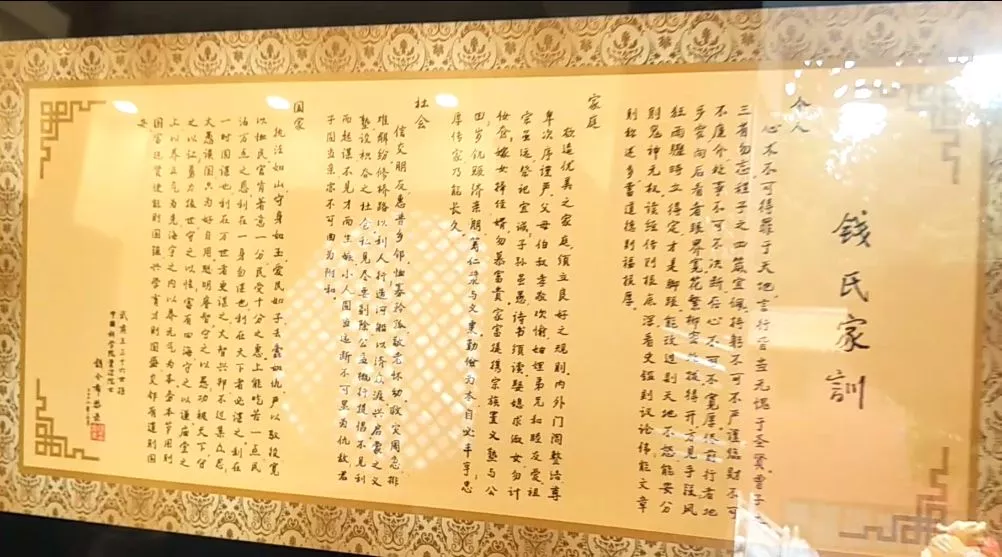 錢氏家訓
个人
心术不可得罪于天地言行皆当无愧于圣贤曾子之
三省勿忘程子之四箴宜佩持躬不可不严谨临财不可
不廉介处事不可不决断存心不可不宽厚尽前行者地
步窄向后看者眼界宽花繁柳密处拨得开方见手段风
狂雨骤时立得定才是脚跟能改过则天地不怒能安分
则鬼神无权读经传则根底深看史鉴则议论伟能文章
则称述多蓄道德则福报厚
家庭
欲造优美之家庭须立良好之规则内外门闾整洁尊
卑次序谨严父母伯叔孝敬欢愉妯娌弟兄和睦友爱祖
宗虽远祭祀宜诚子孙虽愚诗书须读娶媳求淑女勿计
妆奁嫁女择佳婿勿慕富贵家富提携宗族置义塾与公
田岁饥赈济亲朋筹仁浆与义粟勤俭为本自必丰亨忠
厚传家乃能长久
社会
信交朋友惠普乡邻恤寡矜孤敬老怀幼救灾周急排
难解纷修桥路以利人行造河船以济众渡兴启蒙之义
塾设积谷之社仓私见尽要剷除公益概行提倡不见利
而起谋不见才而生嫉小人固当远断不可显为仇敌君
子固当亲亦不可曲为附和
国家
执法如山守身如玉爱民如子去蠹如仇严以驭役宽
以恤民官肯著意一分民受十分之惠上能吃苦一点民
沾万点之恩利在一身勿谋也利在天下者必谋之利在
一时固谋也利在万世者更谋之大智兴邦不过集众思
大愚误国只为好自用聪明睿智守之以愚功被天下守
之以让勇力振世守之以怯富有四海守之以谦庙堂之
上以养正气为先海宇之内以养元气为本务本节用则
国富进贤使能则国强兴学育才则国盛交邻有道则国
安
武肃王三十六世孙
中国科学院资深院士
钱令希恭录